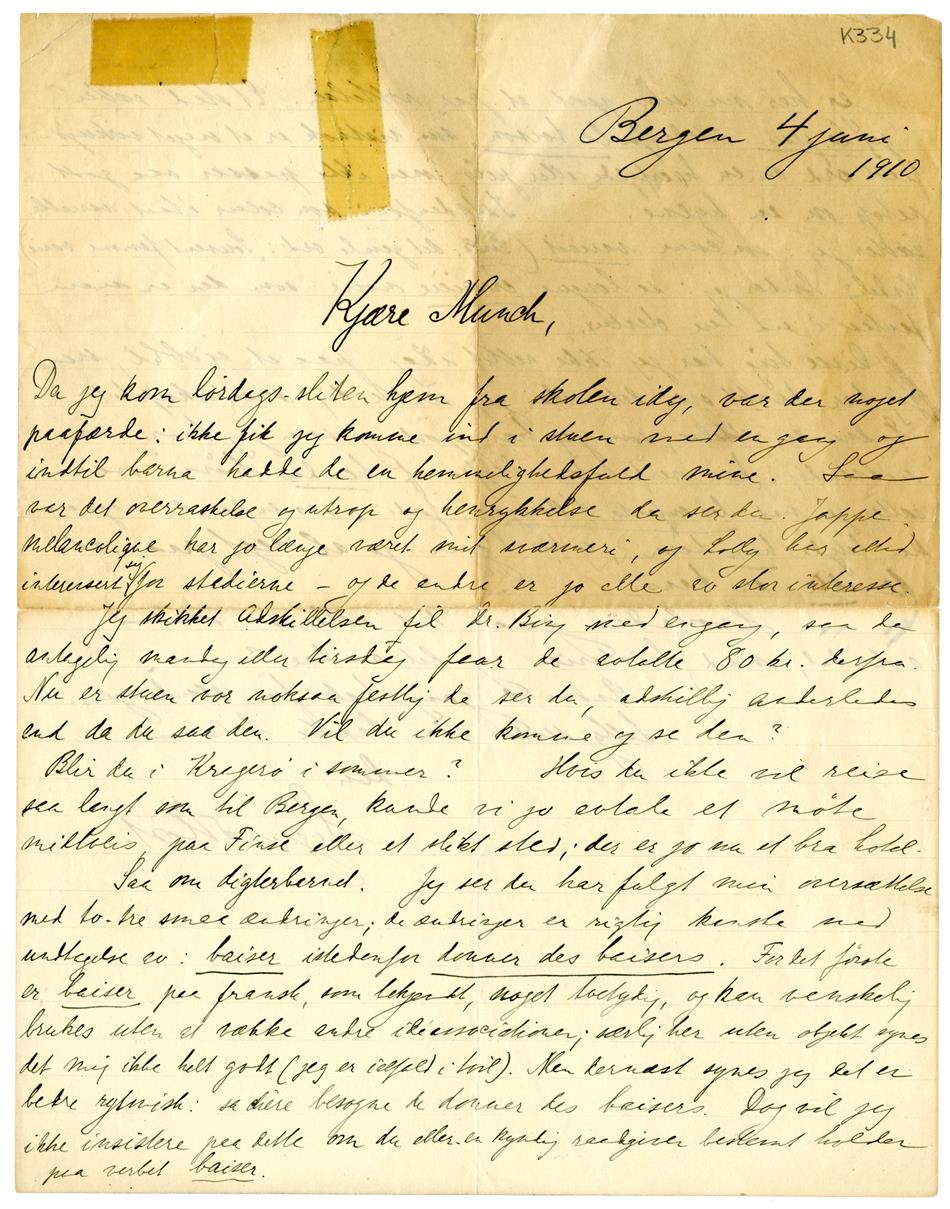 K334
Bergen 4 juni
1910
Kjære Munch,
Da jeg kom lørdags-sliten hjem fra skolen idag, var der noget
paafærde: ikke fik jeg komme ind i stuen med engang og
indtil barna hadde de en hemmelighedsfuld mine. Saa
var det overraskelse og utrop og henrykkelse da ser du. Jappe
melancolique har jo længe været mit sværmeri, og Lolly har altid
interessert sig for stedierne – og de andre er jo alle av stor interesse.
Jeg skikket Adskillelsen til Dr. Bing med engang, saa du
antagelig mandag eller tirsdag faar de avtalte 80 kr. derfra.
Nu er stuen vor voksaa festlig de ser du, adskillig anderledes
end da du saa den. Vil du ikke komme og se den?
Blir du i Kragerø i sommer? Hvis du ikke vil reise
saa langt som til Bergen, kunde vi jo avtale et møte
midtveis, paa Finse eller et slikt sted; der er jo nu et bra hotel.
Saa om digterbarnet. Jeg ser du har fulgt min oversættelse
med to-tre smaa ændringer; de ændringer er rigtig kanske med
undtagelse av: baiser istedenfor donner des baisers. For det første
er baiser paa fransk, som bekjendt, noget tvetydig, og kan vanskelig
brukes uten at vække andre idéassociationer; særlig her uten objekt synes
det mig ikke helt godt (jeg er ialfald i tvil). Men dernæst synes jeg det er
bedre rytmisk: sa chère besogne de donner des baisers. Dog vil jeg
ikke insistere paa dette om du eller en kyndig raadgiver bestemt holder
paa verbet baiser.